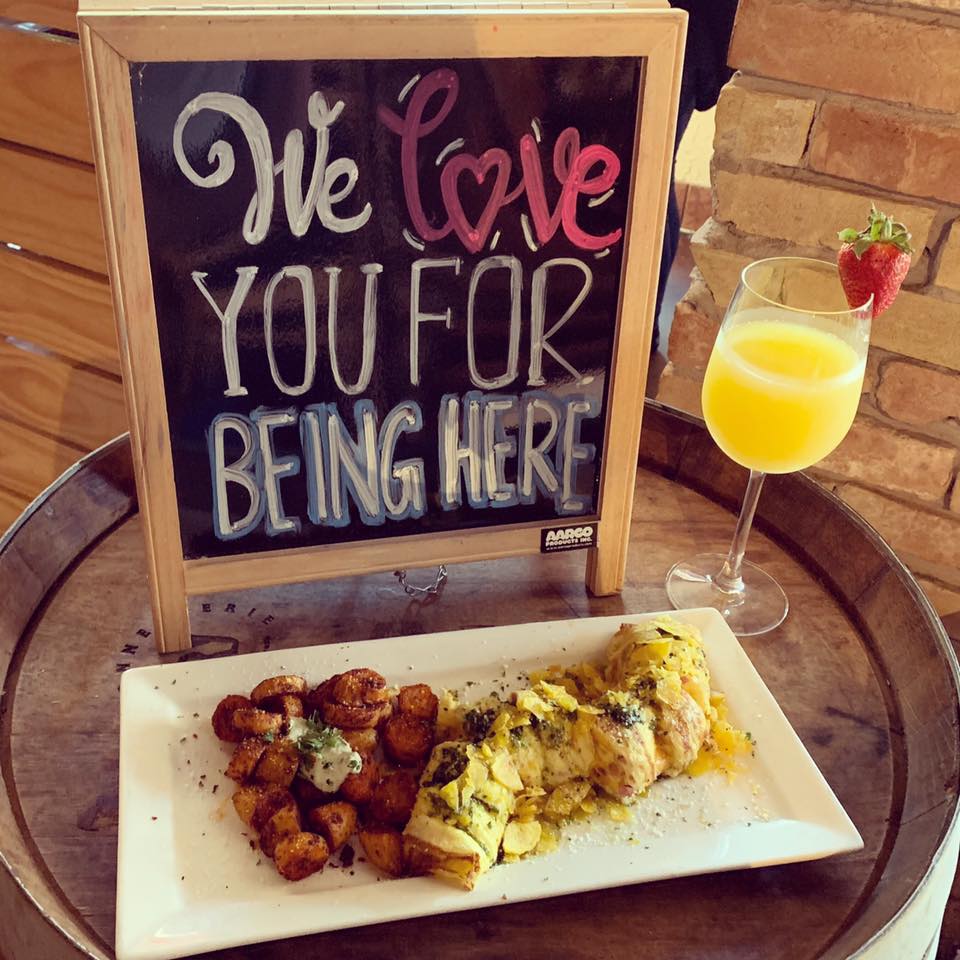 We love
YOU FOR
BEING HERE
AARCO
PRODUCTS INC.